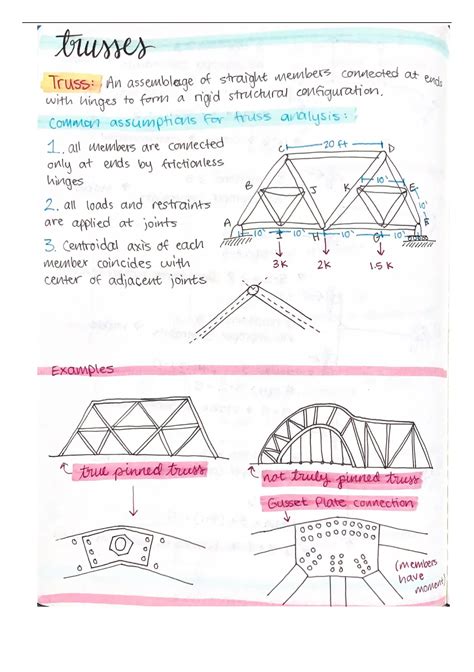 trusses
Truss: An assemblage of straight members connected at ends
with hinges to form a rigid structural configuration.
Common assumptions for truss analysis:
1. all members are connected
only at ends by frictionless
hinges
2. all loads and restraints
are applied at joints
3. Centroidal axis of each
member coincides with
center of adjacent joints
C 20 ft D
10' 10'
B J K E
10'
A 10' I 10' H 10' G 10' F
3K 2K 1.5K
Examples
true pinned truss
not truly pinned truss
Gusset Plate connection
(members
have
moment)